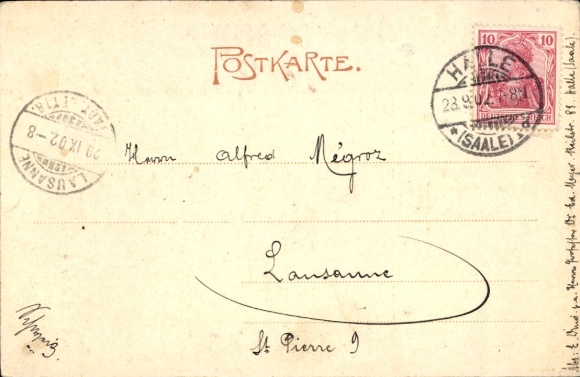 POSTKARTE.
10 10
DEUTSCHES REICH
HALLE
28.9.02. 7-8N
*(SAALE)1*
LAUSANNE
29.IX.02.-8
Herrn Alfred Mégroz
Lausanne
St Pierre 9
Herrn Professor Meyer Halle (Saale).